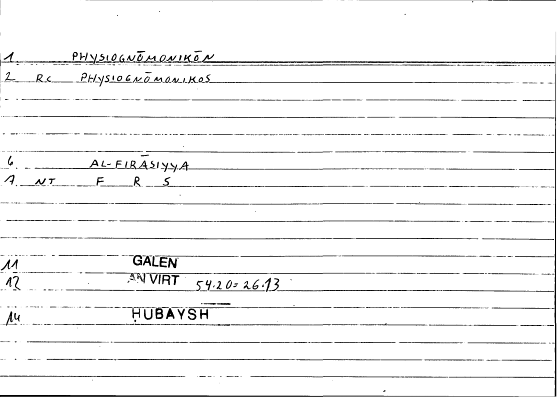 1 PHYSIOGNŌMONIKŌN
2 Rc PHYSIOGNŌMONIKOS
6 AL-FIRĀSIYYA
7 NT F R S
11 GALEN
12 AN VIRT 54.20=26.13
14 ḤUBAYSH